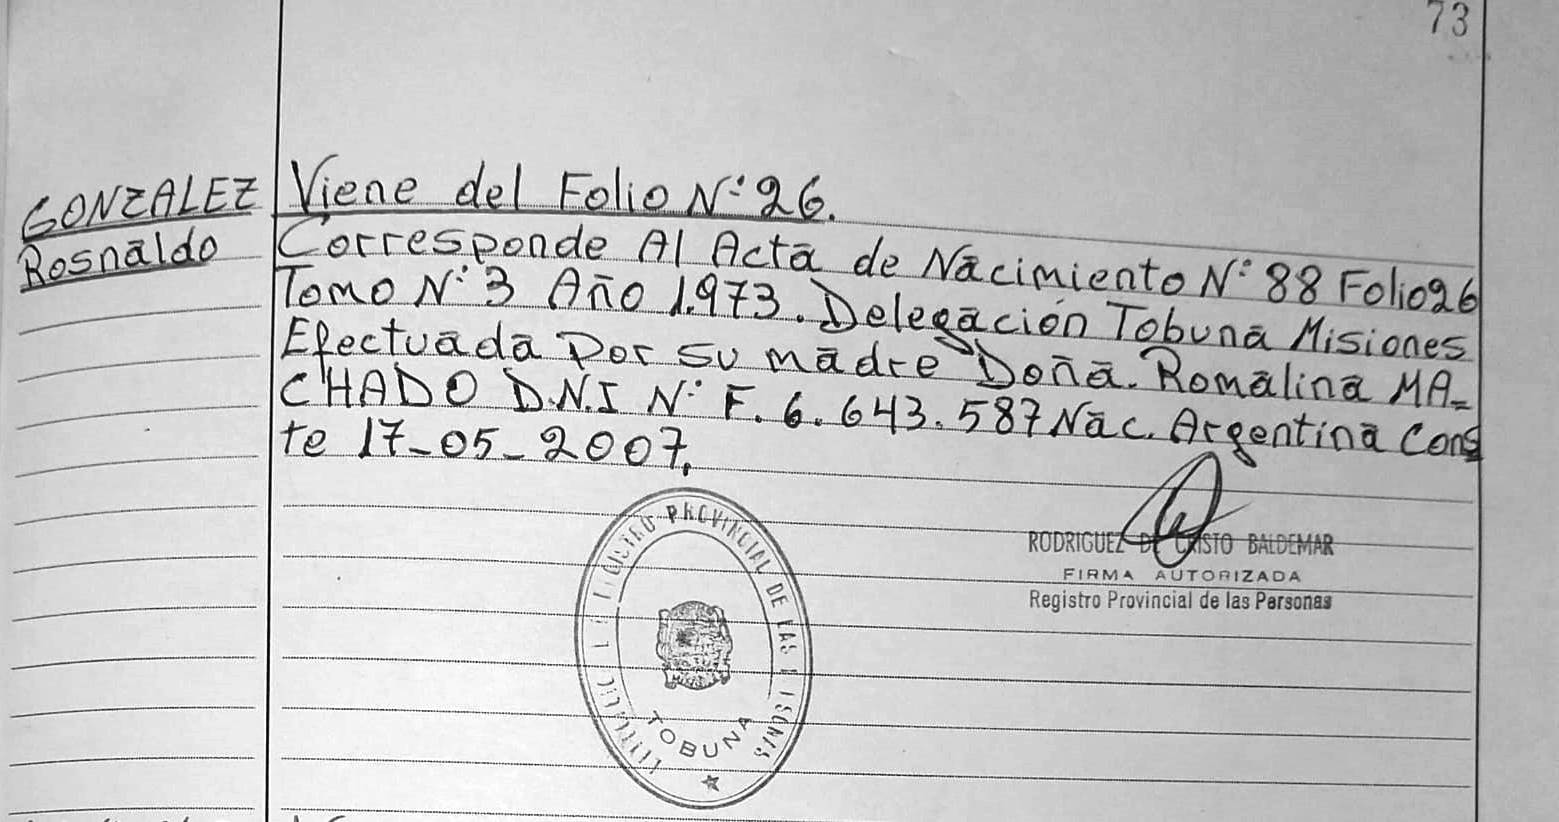 73
GONZALEZ
Rosnaldo
Viene del Folio N° 26.
Corresponde Al Acta de Nacimiento N° 88 Folio 26
Tomo N° 3 Año 1.973. Delegación Tobuna Misiones
Efectuada Por su madre Doña. Romalina MA=
CHADO D.N.I N° F. 6.643.587 Nac. Argentina Cons
te 17-05-2007.
RODRIGUEZ DE CRISTO BALDEMAR
FIRMA AUTORIZADA
Registro Provincial de las Personas
REGISTRO PROVINCIAL DE LAS PERSONAS
TOBUNA